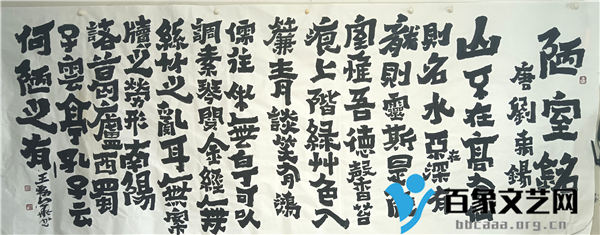 陋室銘
唐劉禹錫
山不在高有仙
則名水不在深有
龍則靈斯是陋
室惟吾德馨苔
痕上階綠艸色入
簾青談笑有鴻
儒往來無白丁可以
調素琴閱金經無
絲竹之亂耳無案
牘之勞形南陽
諸葛廬西蜀
子雲亭孔子云
何陋之有
百家文艺网
bbcaaa.org.cn